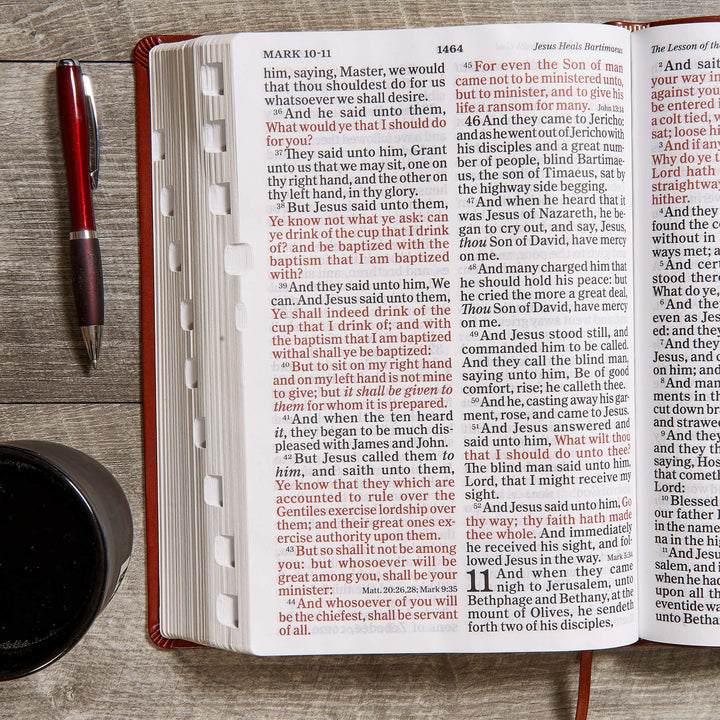 MARK 10-11
1464
Jesus Heals Bartimeus
him, saying, Master, we would
that thou shouldest do for us
whatsoever we shall desire.
36 And he said unto them,
What would ye that I should do
for you?
37 They said unto him, Grant
unto us that we may sit, one on
thy right hand, and the other on
thy left hand, in thy glory.
38 But Jesus said unto them,
Ye know not what ye ask: can
ye drink of the cup that I drink
of? and be baptized with the
baptism that I am baptized
with?
39 And they said unto him, We
can. And Jesus said unto them,
Ye shall indeed drink of the
cup that I drink of; and with
the baptism that I am baptized
withal shall ye be baptized:
40 But to sit on my right hand
and on my left hand is not mine
to give; but it shall be given to
them for whom it is prepared.
41 And when the ten heard
it, they began to be much dis-
pleased with James and John.
42 But Jesus called them to
him, and saith unto them,
Ye know that they which are
accounted to rule over the
Gentiles exercise lordship over
them; and their great ones ex-
ercise authority upon them.
43 But so shall it not be among
you: but whosoever will be
great among you, shall be your
minister: Matt. 20:26,28; Mark 9:35
44 And whosoever of you will
be the chiefest, shall be servant
of all.
45 For even the Son of man
came not to be ministered unto,
but to minister, and to give his
life a ransom for many. John 13:14
46 And they came to Jericho:
and as he went out of Jericho with
his disciples and a great num-
ber of people, blind Bartimae-
us, the son of Timaeus, sat by
the highway side begging.
47 And when he heard that it
was Jesus of Nazareth, he be-
gan to cry out, and say, Jesus,
thou Son of David, have mercy
on me.
48 And many charged him that
he should hold his peace: but
he cried the more a great deal,
Thou Son of David, have mercy
on me.
49 And Jesus stood still, and
commanded him to be called.
And they call the blind man,
saying unto him, Be of good
comfort, rise; he calleth thee.
50 And he, casting away his gar-
ment, rose, and came to Jesus.
51 And Jesus answered and
said unto him, What wilt thou
that I should do unto thee?
The blind man said unto him,
Lord, that I might receive my
sight.
52 And Jesus said unto him, Go
thy way; thy faith hath made
thee whole. And immediately
he received his sight, and fol-
lowed Jesus in the way. Mark 5:34
11 And when they came
nigh to Jerusalem, unto
Bethphage and Bethany, at the
mount of Olives, he sendeth
forth two of his disciples,
The Lesson of the
2 And sait
your way in
against you
be entered i
a colt tied, w
sat; loose hi
3 And if any
Why do ye t
Lord hath
straightway
hither.
4 And they
found the co
without in
ways met; a
5 And certa
stood there
What do ye,
6 And they
even as Jes
ed: and they
7 And they
Jesus, and c
on him; and
8 And many
ments in the
cut down bra
and strawed
9 And they
and they th
saying, Hos
that cometh
Lord:
10 Blessed
our father
in the name
na in the hig
11 And Jesus
salem, and i
when he had
upon all th
eventide wa
unto Bethan